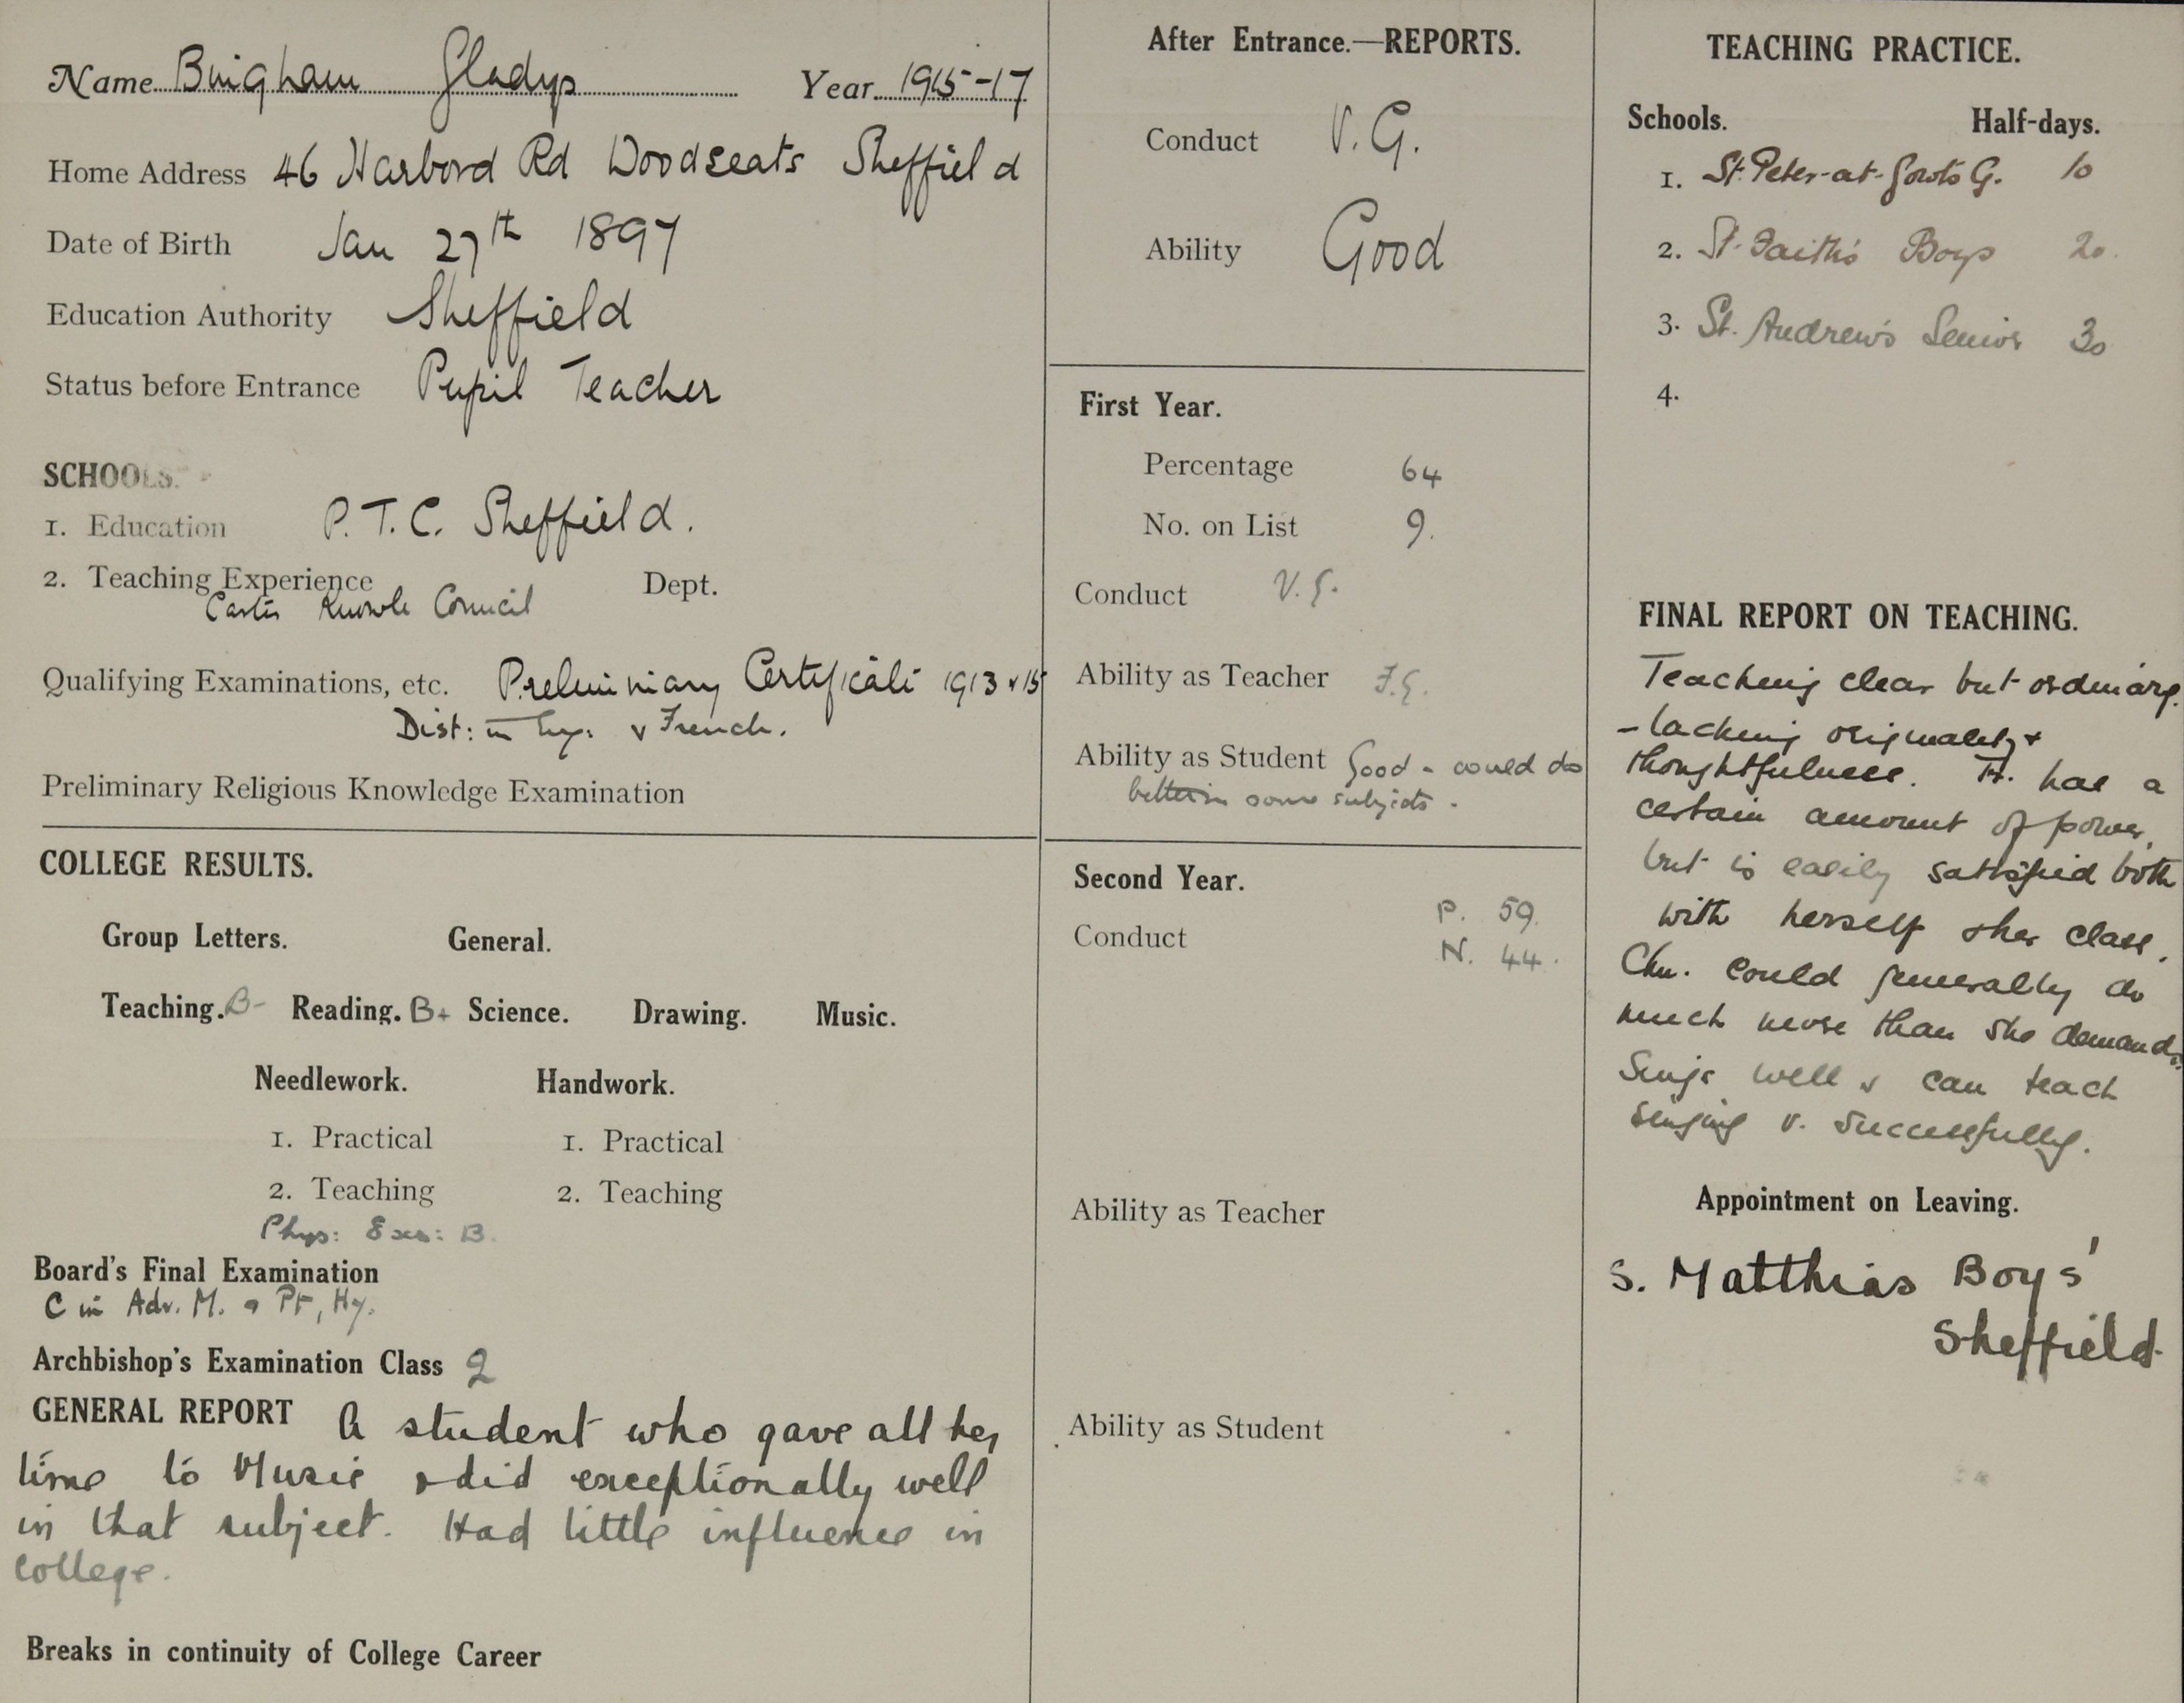 Name Bingham Gladys Year 1915-17
Home Address 46 Harbord Rd Woodseats Sheffield
Date of Birth Jan 27th 1897
Education Authority Sheffield
Status before Entrance Pupil Teacher
SCHOOLS.
1. Education P.T.C. Sheffield.
2. Teaching Experience Dept.
Carter Knowle Council
Qualifying Examinations, etc. Preliminary Certificate 1913 & 15
Dist: in Hy: & French.
Preliminary Religious Knowledge Examination
COLLEGE RESULTS.
Group Letters. General.
Teaching. B- Reading. B+ Science. Drawing. Music.
Needlework. Handwork.
1. Practical 1. Practical
2. Teaching 2. Teaching
Phys: Exs: B.
Board's Final Examination
C in Adv. M. & Pt, Hy.
Archbishop's Examination Class 2
GENERAL REPORT A student who gave all her
time to Music & did exceptionally well
in that subject. Had little influence in
college.
Breaks in continuity of College Career
After Entrance.—REPORTS.
Conduct V.G.
Ability Good
First Year.
Percentage 64
No. on List 9.
Conduct V.G.
Ability as Teacher F.G.
Ability as Student Good - could do
better in some subjects.
Second Year.
P. 59.
Conduct
N. 44.
Ability as Teacher
Ability as Student
TEACHING PRACTICE.
Schools. Half-days.
1. St. Peter-at-Gowts G. 10
2. St. Faith's Boys 20.
3. St. Andrew's Senior 30
4.
FINAL REPORT ON TEACHING.
Teaching clear but ordinary.
- lacking originality &
thoughtfulness. Tr. has a
certain amount of power,
but is easily satisfied both
with herself & her class.
Chn. could generally do
much more than she demands.
Sings well & can teach
singing v. successfully.
Appointment on Leaving.
S. Matthias Boys'
Sheffield.